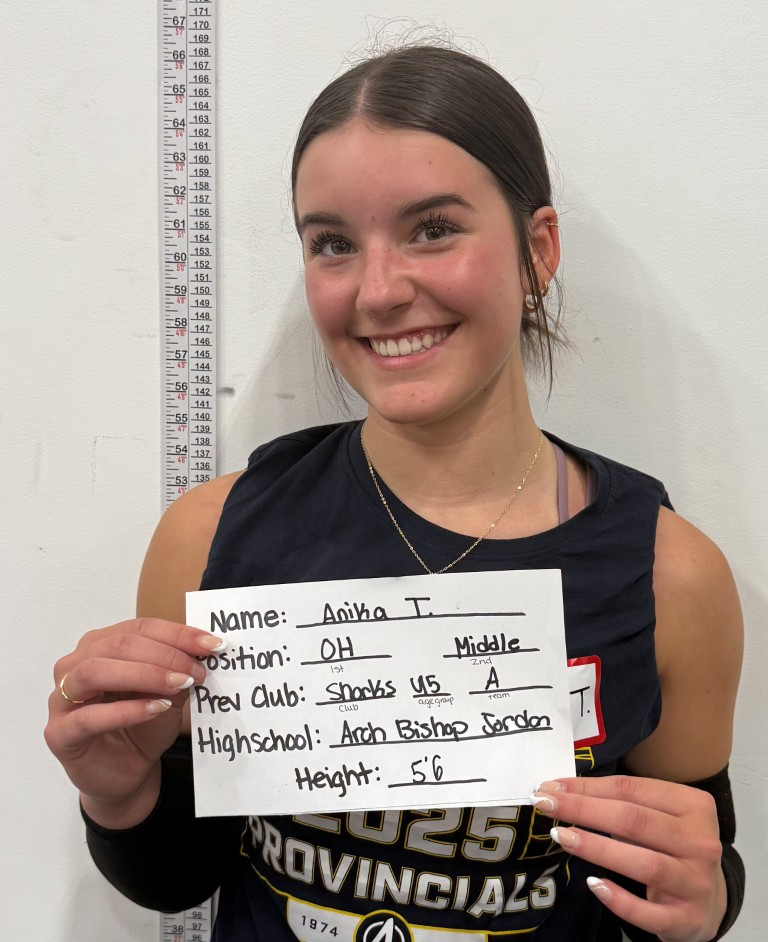 Name: Anika T.
Position: OH Middle
1st 2nd
Prev Club: Sharks U5 A
Club age group team
T.
Highschool: Arch Bishop Jordan
Height: 5'6
2025
PROVINCIALS
1974
A
67 171
170
169
66 168
167
166
65 165
164
64 163
162
161
63 160
159
158
62 157
156
155
61 154
153
60 152
151
59 150
149
148
58 147
146
145
57 144
143
56 142
141
140
55 139
138
54 137
136
53 135
98
38 97
96